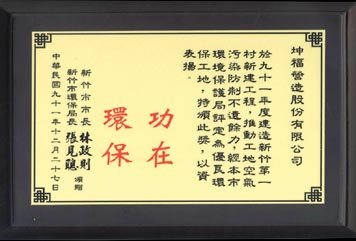 坤福營造股份有限公司
於九十一年度建造新竹第一
村新建工程，推動工地空氣
污染防制不遺餘力，經本市
環境保護局評定為優良環
保工地，特頒此獎，以資
表揚。
功在
環保
新竹市市長 林政則
新竹市環保局 張見聰 頒贈
中華民國九十一年十二月二十七日